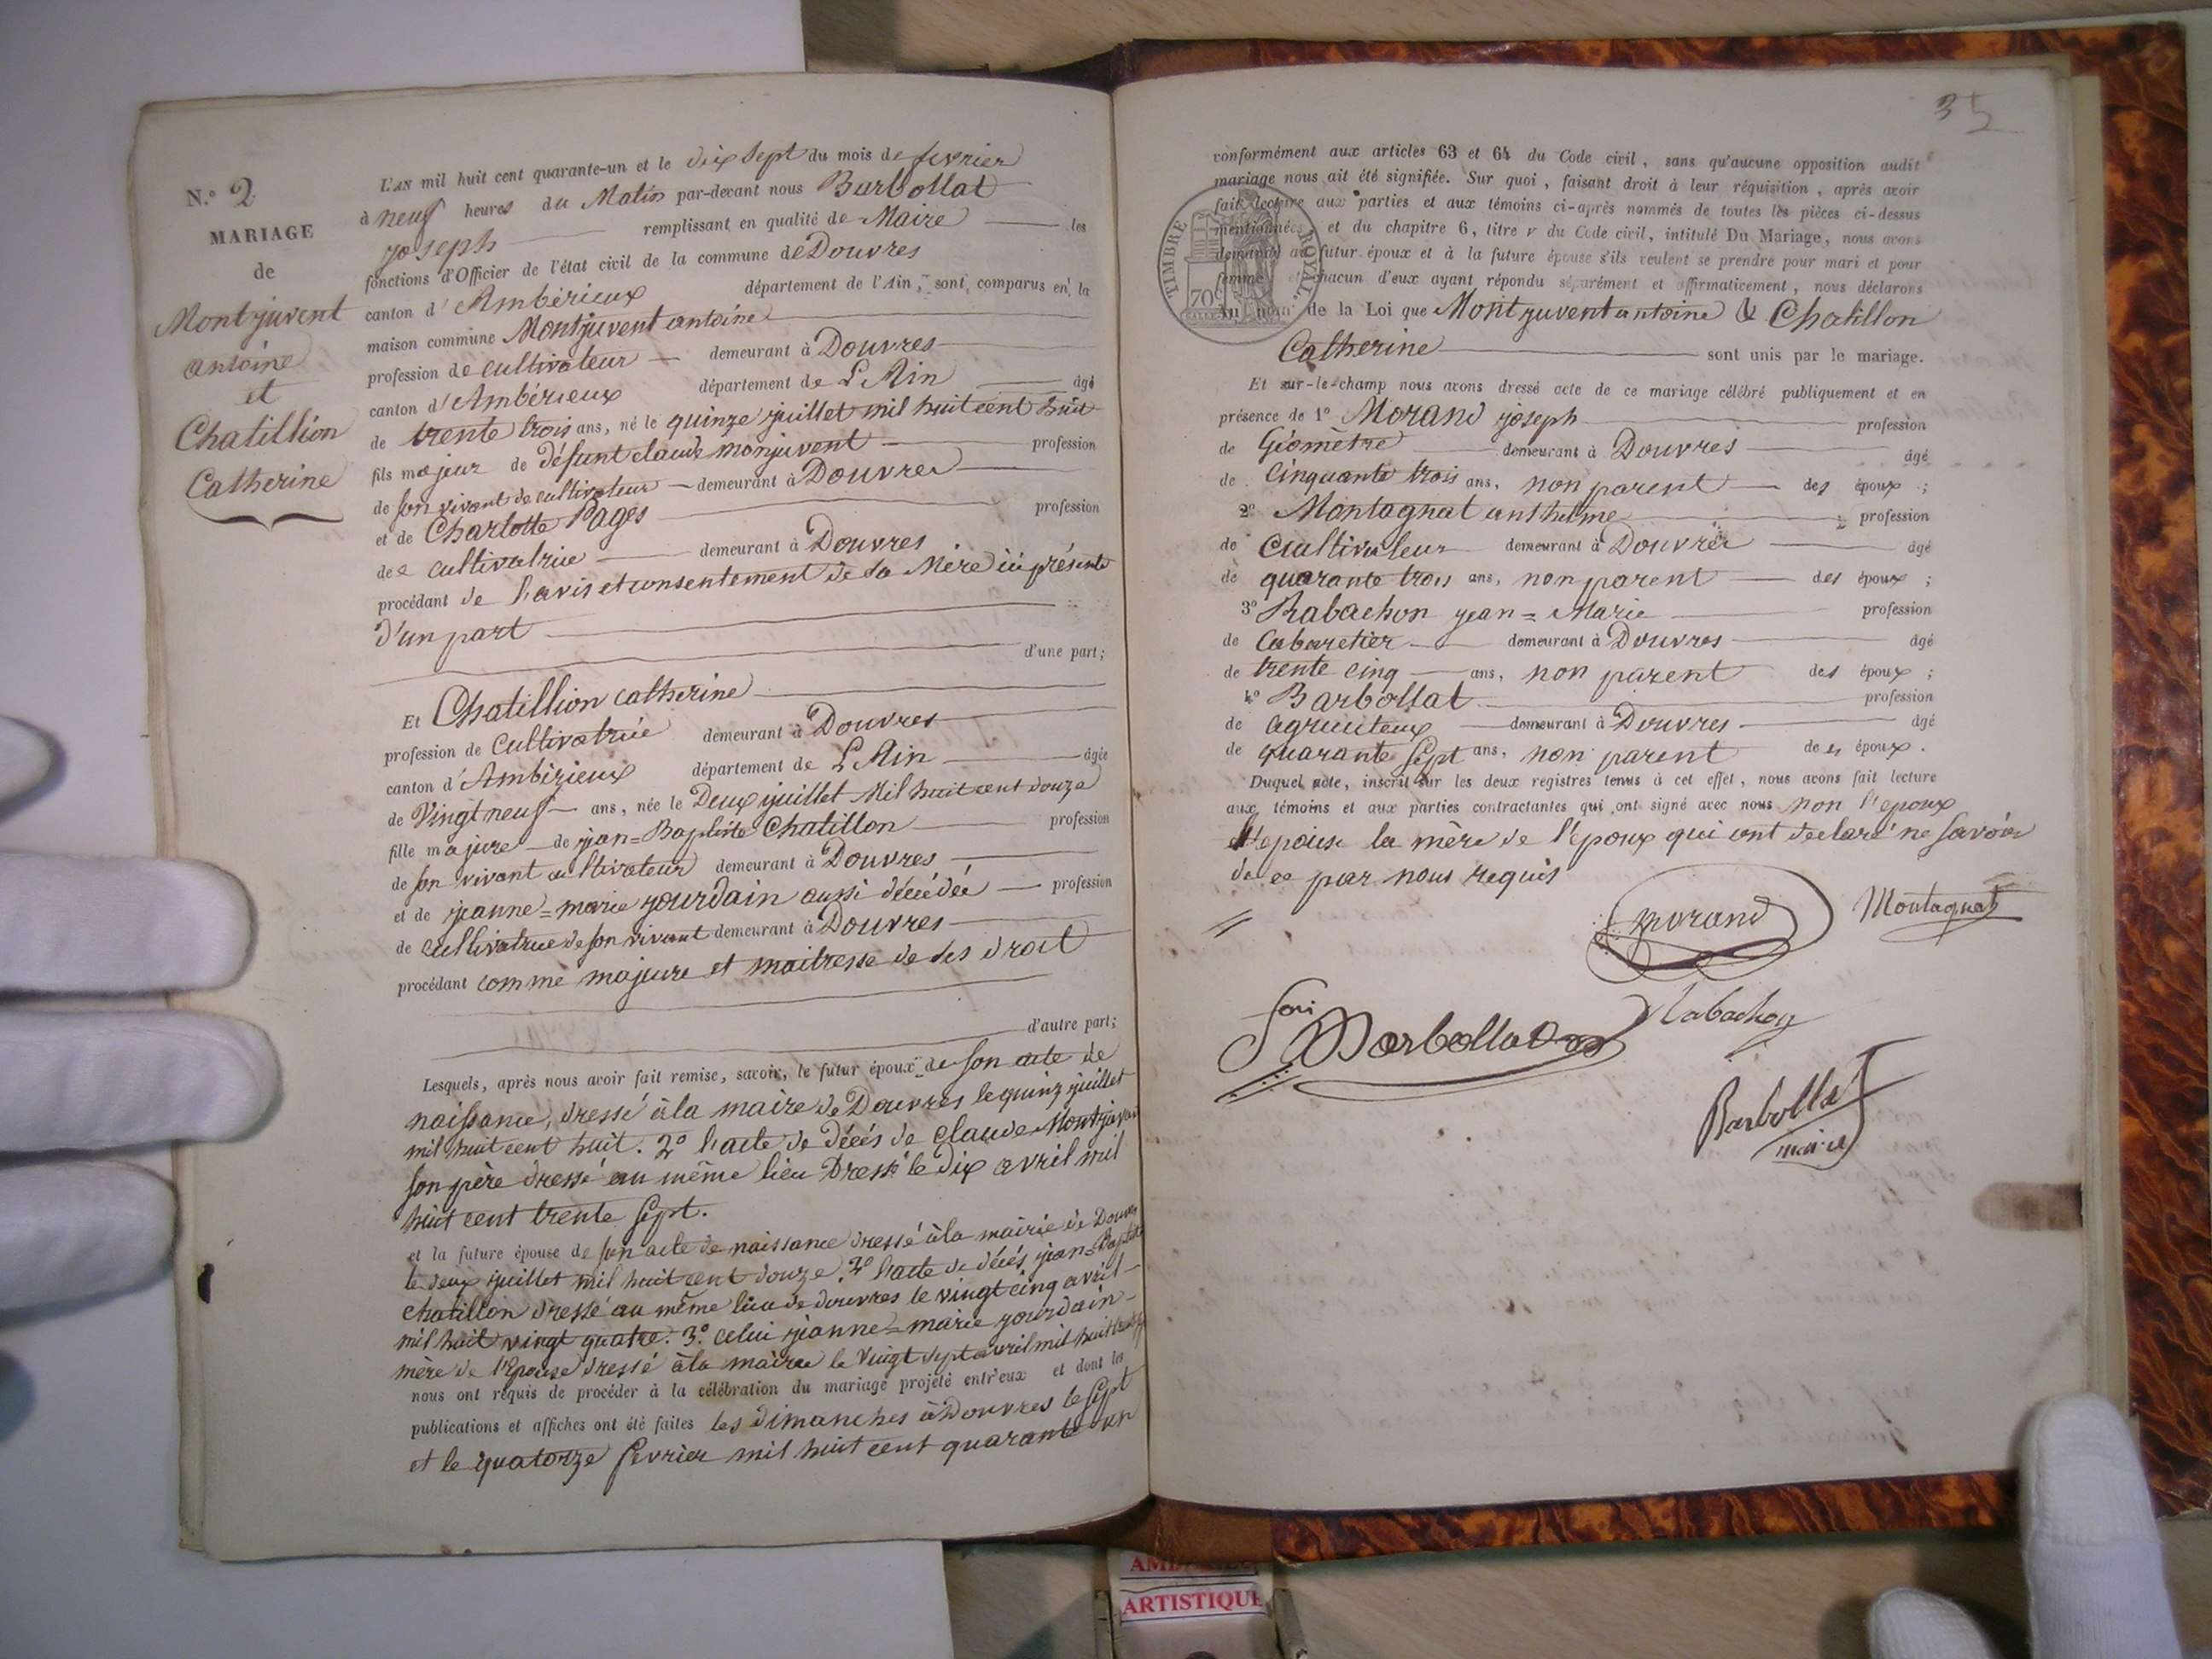 N.º 2
MARIAGE
de
Montjuvent
antoine
et
Chatillion
Catherine
L'AN mil huit cent quarante-un et le dix sept du mois de fevrier
à neuf heures du Matin par-devant nous Barbollat
joseph remplissant en qualité de Maire les
fonctions d'Officier de l'état civil de la commune de Douvres
canton d'Ambérieux département de l'Ain, sont comparus en la
maison commune Montjuvent antoine
profession de cultivateur demeurant à Douvres
canton d'Ambérieux département de L'Ain âgé
de trente trois ans, né le quinze juillet mil huit cent huit
fils majeur de défunt claude monjuvent profession
de son vivant de cultivateur demeurant à Douvres
et de Charlotte Pages profession
de cultivatrice demeurant à Douvres
procédant de l'avis et consentement de sa Mère ici présente
d'un part
d'une part;
Et Chatillion catherine
profession de cultivatrice demeurant à Douvres
canton d'Ambérieux département de L'Ain âgée
de Vingt neuf ans, née le Deux juillet Mil huit cent douze
fille majure de jean=Baptiste Chatillon profession
de son vivant cultivateur demeurant à Douvres
et de jeanne=marie jourdain aussi décédée profession
de cultivatrice de son vivant demeurant à Douvres
procédant comme majeure et maitresse de ses droit
d'autre part;
Lesquels, après nous avoir fait remise, savoir, le futur époux de son acte de
naissance, dressé à la maire de Douvres le quinz juillet
mil huit cent huit. 2º l'acte de décés de claude Montjuvent
son père dressé au même lieu Dressé le dix avril mil
huit cent trente sept.
et la future épouse de son acte de naissance dressé à la mairie de Douvres
le deux juillet mil huit cent douze. 2º l'acte de décés jean=Baptiste
chatillon dressé au même lieu de douvres le vingt cinq avril
mil huit vingt quatre. 3º celui jeanne=marie jourdain
mère de l'Epouse dressé à la mairie le Vingt sept avril mil huit
nous ont requis de procéder à la célébration du mariage projeté entr'eux et dont les
publications et affiches ont été faites les dimanches à Douvres le sept
et le quatorze fevrier mil huit cent quarante un
35
conformément aux articles 63 et 64 du Code civil, sans qu'aucune opposition audit
mariage nous ait été signifiée. Sur quoi, faisant droit à leur réquisition, après avoir
fait lecture aux parties et aux témoins ci-après nommés de toutes les pièces ci-dessus
mentionnées, et du chapitre 6, titre v du Code civil, intitulé Du Mariage, nous avons
demandé au futur époux et à la future épouse s'ils veulent se prendre pour mari et pour
femme et chacun d'eux ayant répondu séparément et affirmativement, nous déclarons
Au nom de la Loi que Montjuvent antoine & Chatillon
Catherine sont unis par le mariage.
TIMBRE ROYAL
70
Et sur-le-champ nous avons dressé acte de ce mariage célébré publiquement et en
présence de 1º Morand joseph profession
de Géomètre demeurant à Douvres âgé
de cinquante trois ans, non parent des époux ;
2º Montagnat anthelme profession
de Cultivateur demeurant à Douvres âgé
de quarante trois ans, non parent des époux ;
3º Rabachon jean=Marie profession
de Cabaretier demeurant à Douvres âgé
de trente cinq ans, non parent des époux ;
4º Barbollat profession
de demeurant à Douvres âgé
de quarante sept ans, non parent des époux.
Duquel acte, inscrit sur les deux registres tenus à cet effet, nous avons fait lecture
aux témoins et aux parties contractantes qui ont signé avec nous non l'epoux
et l'epouse la mère de l'epoux qui ont declaré ne savoir
de ce par nous requis
Morand
Montagnat
Barbollat
Rabachon
Barbollat
maire
ARTISTIQUE